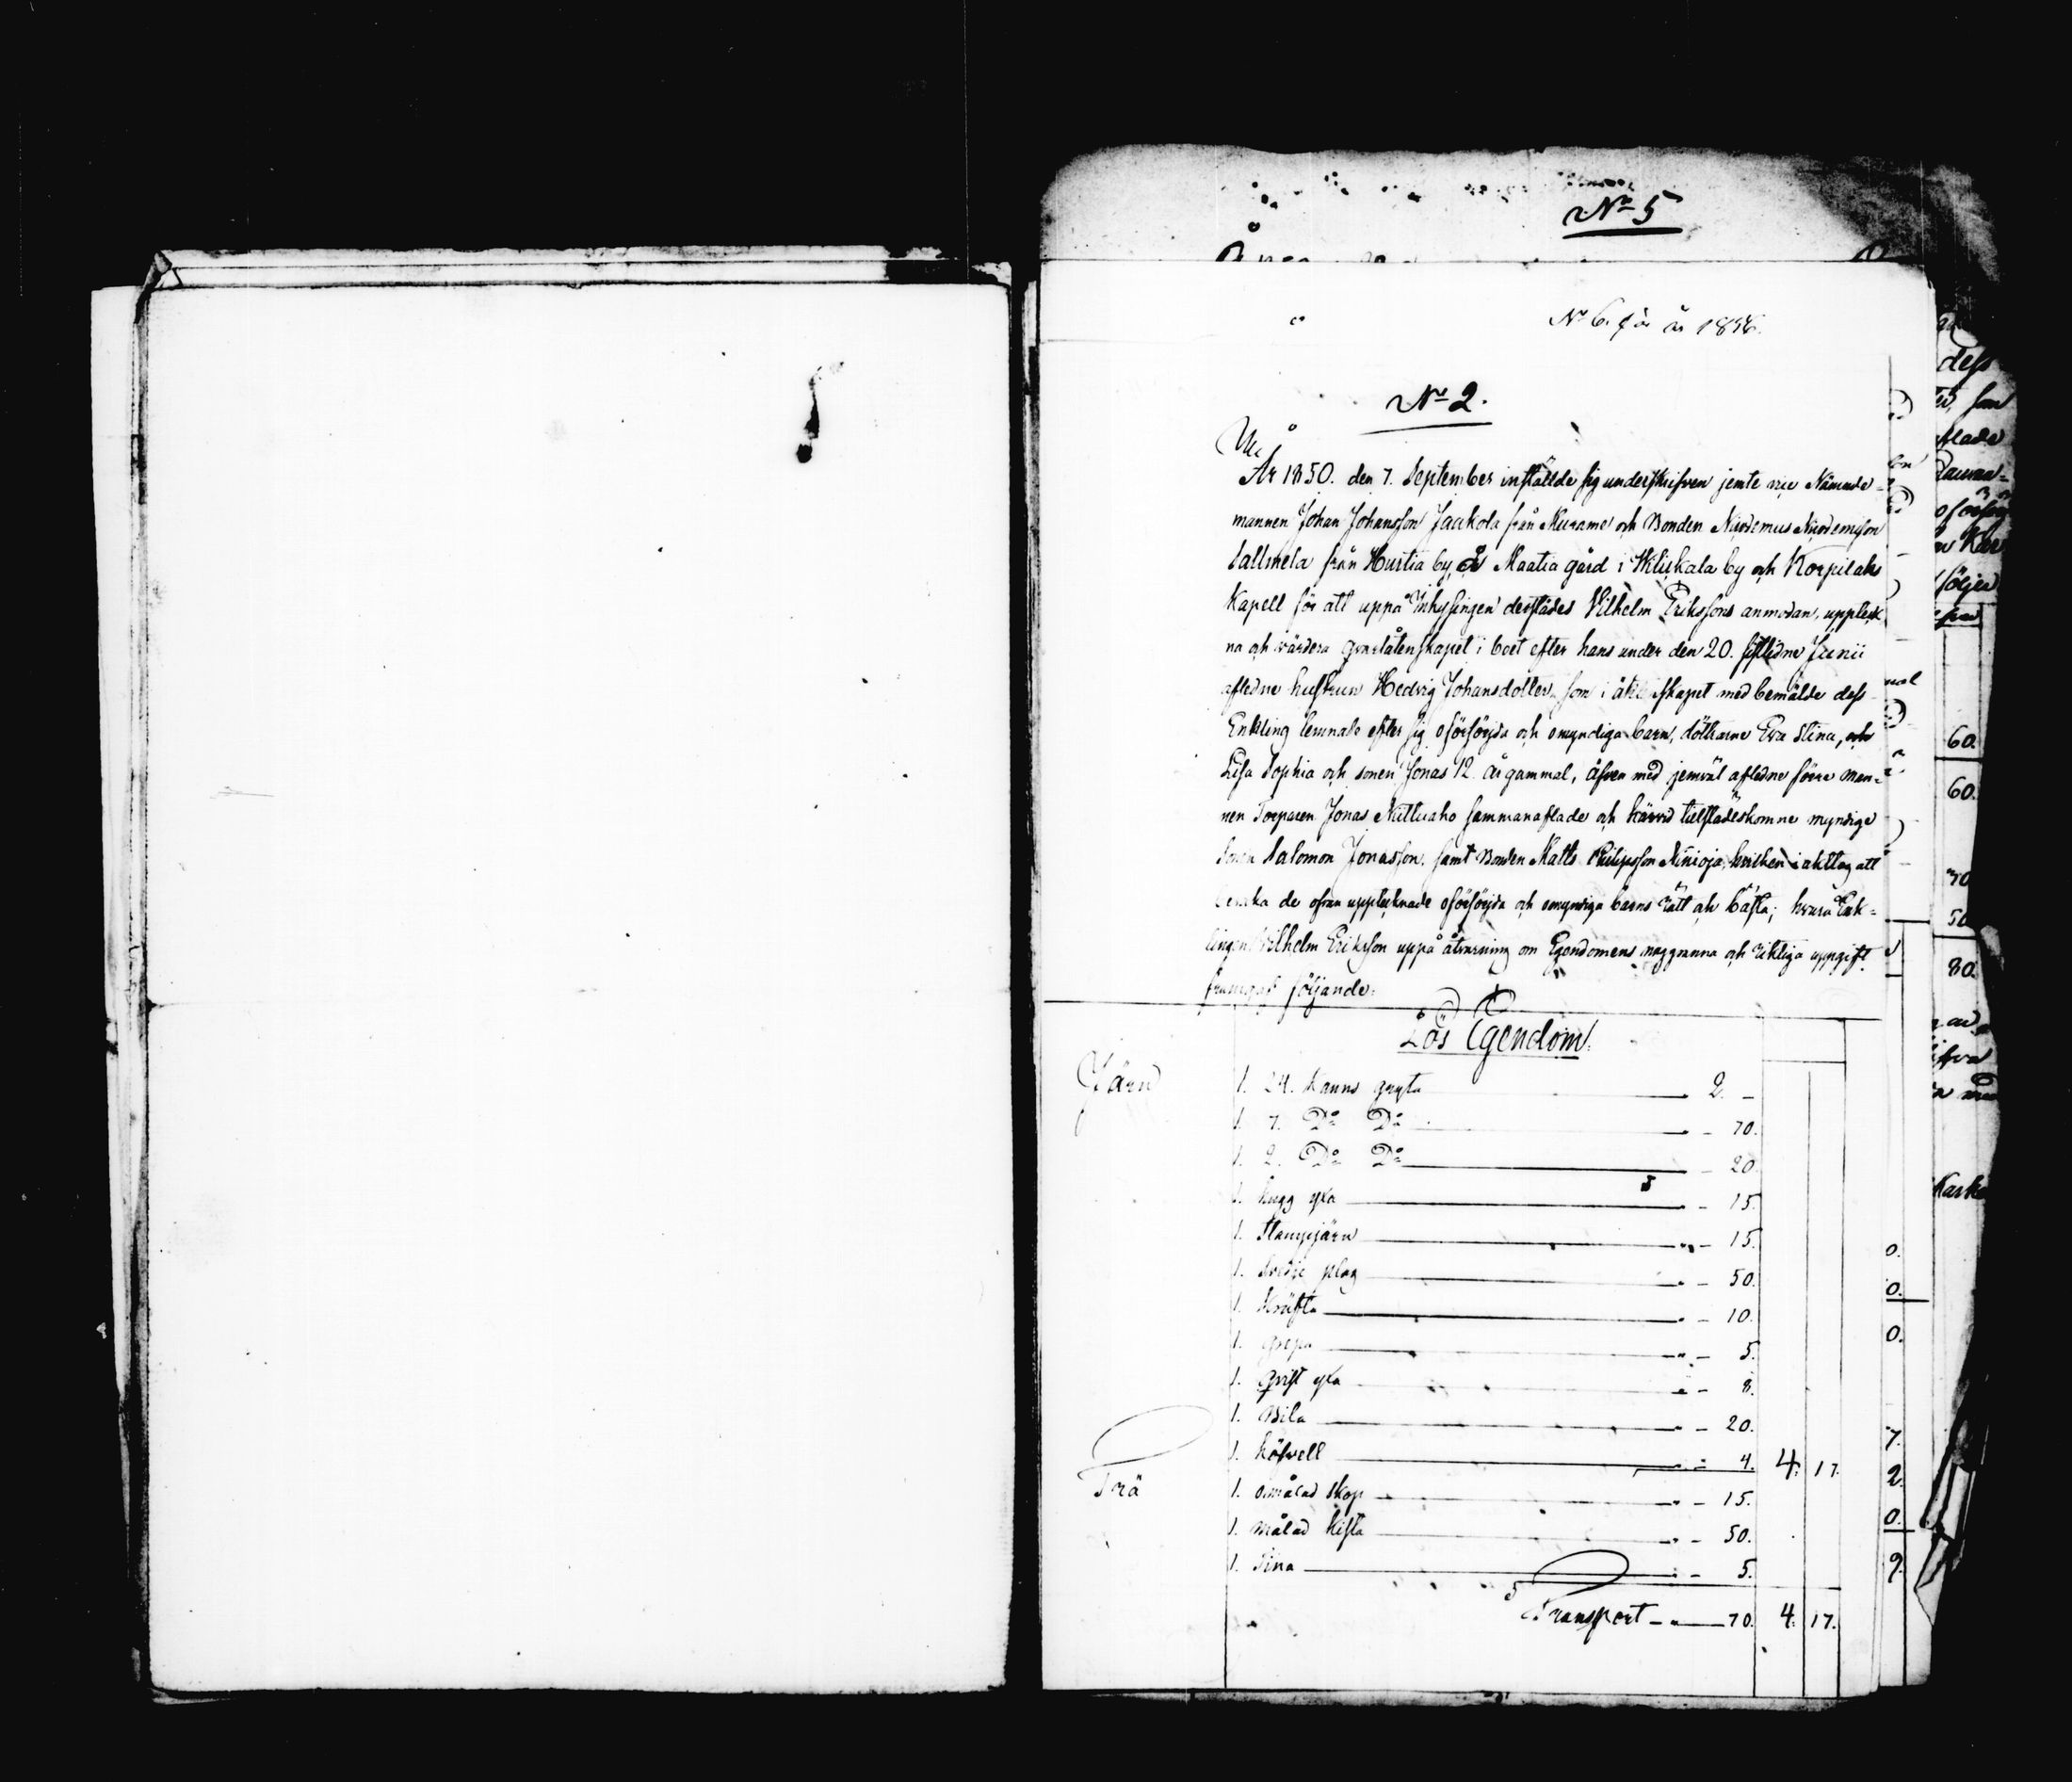 No 5
No 6. för år 1856.
No 2.
År 1850. den 7. September inställde sig underskrifven jemte Nämnde-
mannen Johan Johansson Jaakola från Murame och Bonden Nicodemus Nicodemisson
Sallmela från Hurtia by å Maatia gård i Wiliskala by och Korpilaks
Kapell för att uppå Inhysingen derstädes Vilhelm Erikssons anmodan, uppteck
na och värdera qvarlåtenskapet i boet efter hans under den 20. sistledne Junii
afledne hustrun Hedvig Johansdotter, som i äktenskapet med bemälde dess
Enkling lemnade efter sig oförsörjda och omyndiga barn, döttrarne Eva Stina, och
Lisa Sophia och sonen Jonas 12. år gammal, äfven med jemväl afledne förre man-
nen Torparen Jonas Nuttuaho sammanaflade och härvid tillstädeskomne myndige
Sonen Salomon Jonasson, samt Bonden Matts Philipsson Niinioja, hvilken iakttog att
bevaka de ofvan upptecknade oförsörjda och omyndiga barns rätt och bästa; hvara Enk-
lingen Vilhelm Eriksson uppå åtvarning om Egendomens noggranna och riktiga uppgift
framgaf följande:
Lös Egendom.
Järn
1. 24. Kanns gryta 2. -
1. 7. Do Do " - 70.
1. 2. Do Do - 20.
1. hugg yxa " - 15.
1. Stampjärn " - 15.
1. Svidje plog " - 50.
1. Kräfta " - 10.
1. grepa " - 5.
1. qvist yxa " - 8.
1. Bila " - 20.
1. höfvell " - 4. 4. 17.
Trä
1. omålad skop " - 15.
1. målad kista " - 50.
1. Tina " - 5.
Transport - " 70. 4. 17.
dess
60.
60.
70
50
80.
0.
0.
0.
7.
2.
0.
9.